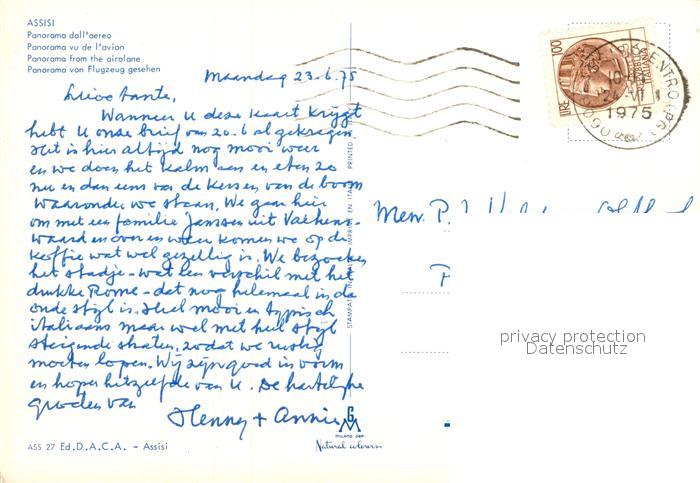 ASSISI
Panorama dall'aereo
Panorama vu de l'avion
Panorama from the airplane
Panorama von Flugzeug gesehen
Maandag 23.6.75
Lieve tante,
Wanneer U deze kaart krijgt
hebt U onze brief van 20.6 al gekregen.
Het is hier altijd nog mooi weer
en we doen het kalm aan en eten zo
nu en dan eens van de kersen van de boom
waaronder we staan. We gaan hier
om met een familie Janssen uit Valkens-
waard en over en weer komen we op de
koffie wat wel gezellig is. We bezoeken
het stadje - wat een verschil met het
drukke Rome - dat nog helemaal in de
oude stijl is. Heel mooi en typisch
italiaans maar wel met heel stijl
steigende straten, zodat we rustig
moeten lopen. Wij zijn goed in vorm
en hopen hetzelfde van U. De hartelijke
groeten van
Henny + Annie
ASS 27 Ed.D.A.C.A. - Assisi
STAMPATO IN ITALIA IMPRIMÉ EN ITALIE PRINTED IN
GM
MILANO
Natural colours
LIRE 100
1975
Mevr. P.
P
privacy protection
Datenschutz